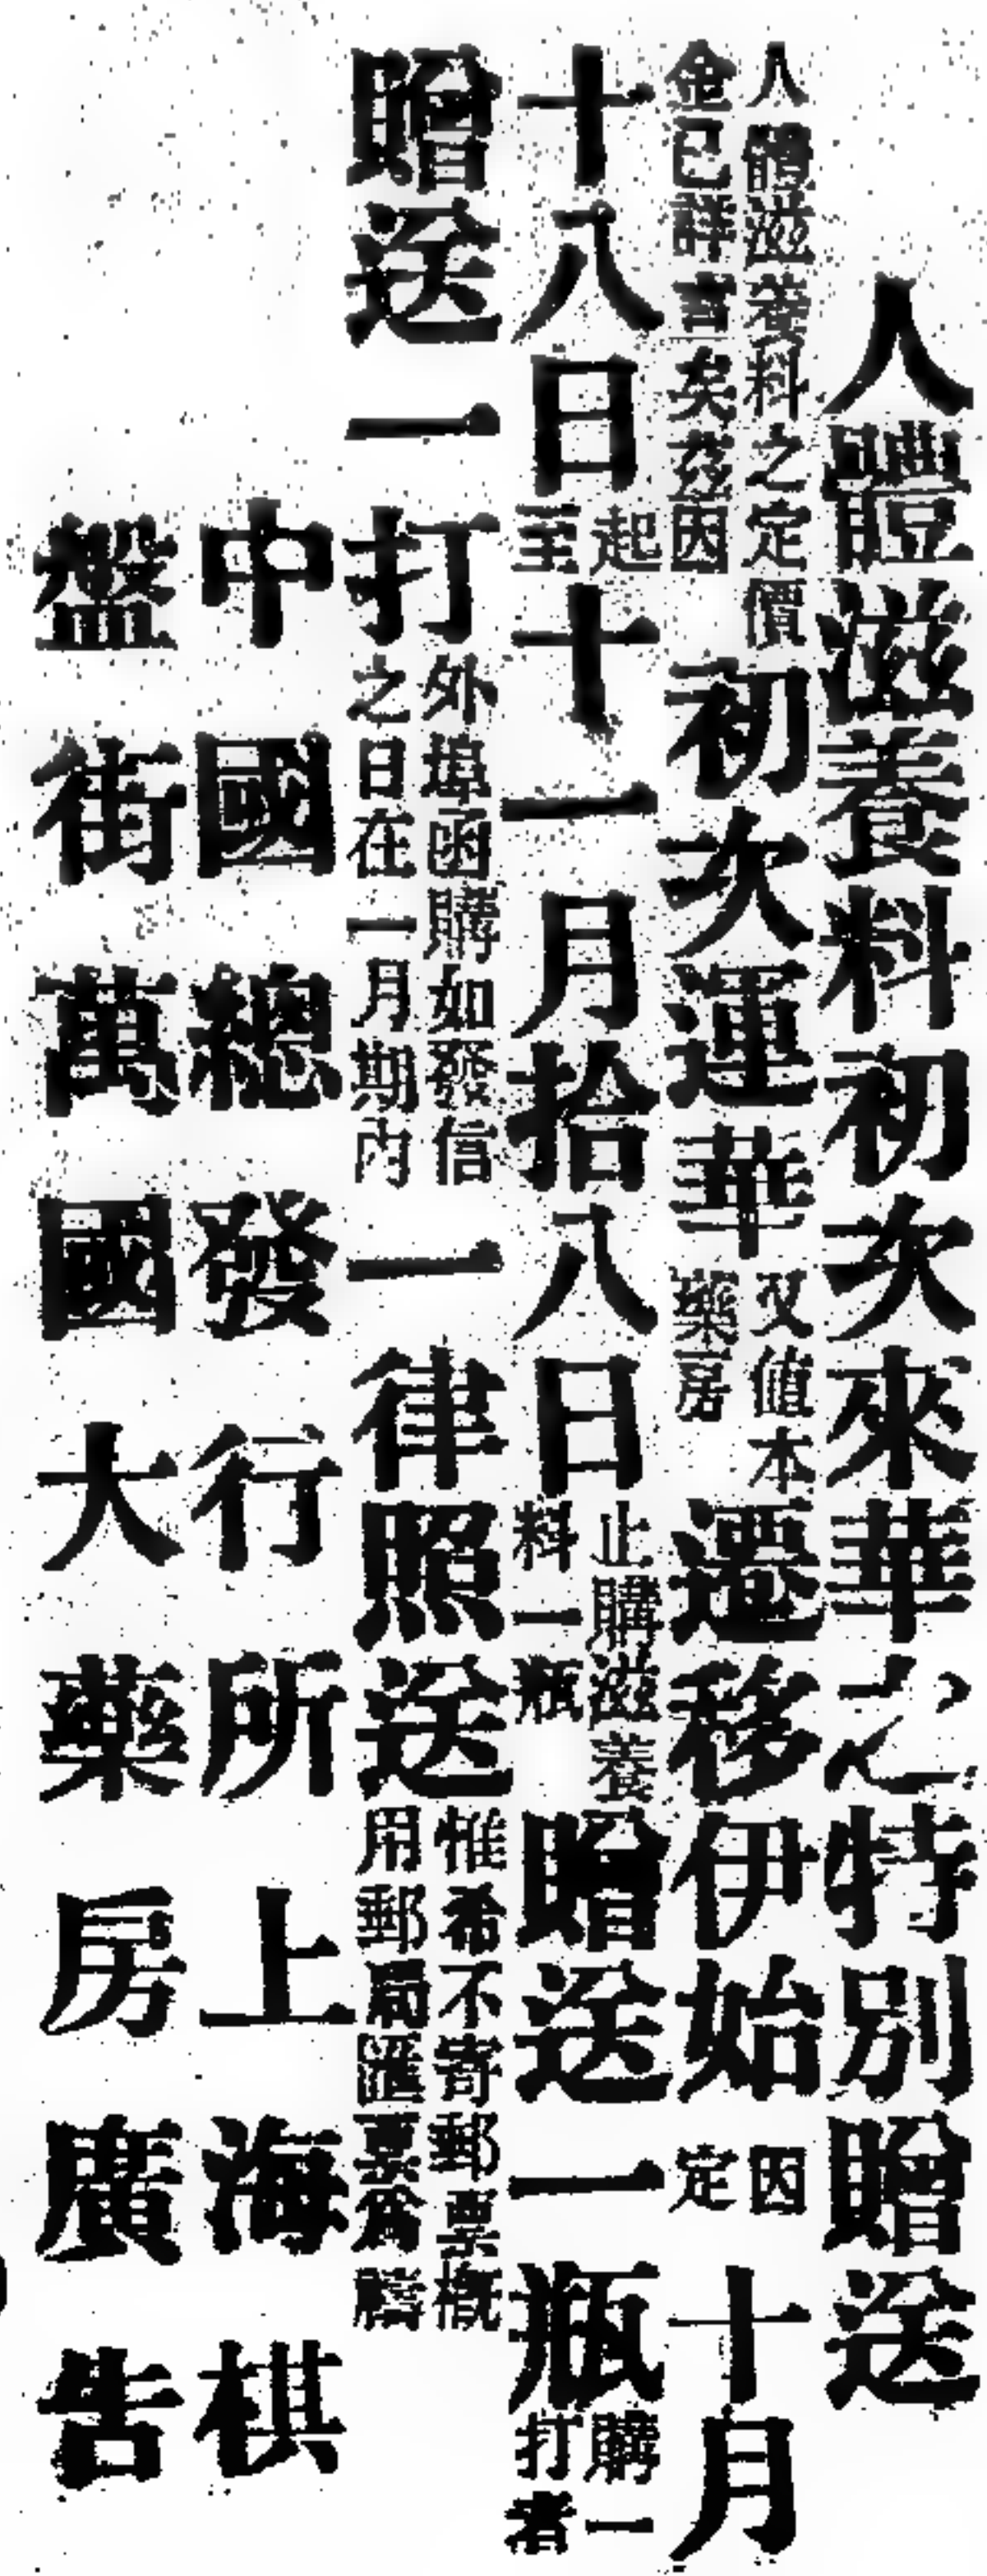 人體滋養料初次來華之特別贈送
人體滋養料之定價金已詳言矣茲因初次運華又值本藥房遷移伊始因定十月
十八日起至十一月拾八日止購滋養料一瓶贈送一瓶購一打者
贈送一打外埠函購如發信之日在一月期內一律照送惟希不寄郵票概用郵局匯票爲
中國總發行所上海棋
盤街萬國大藥房廣告